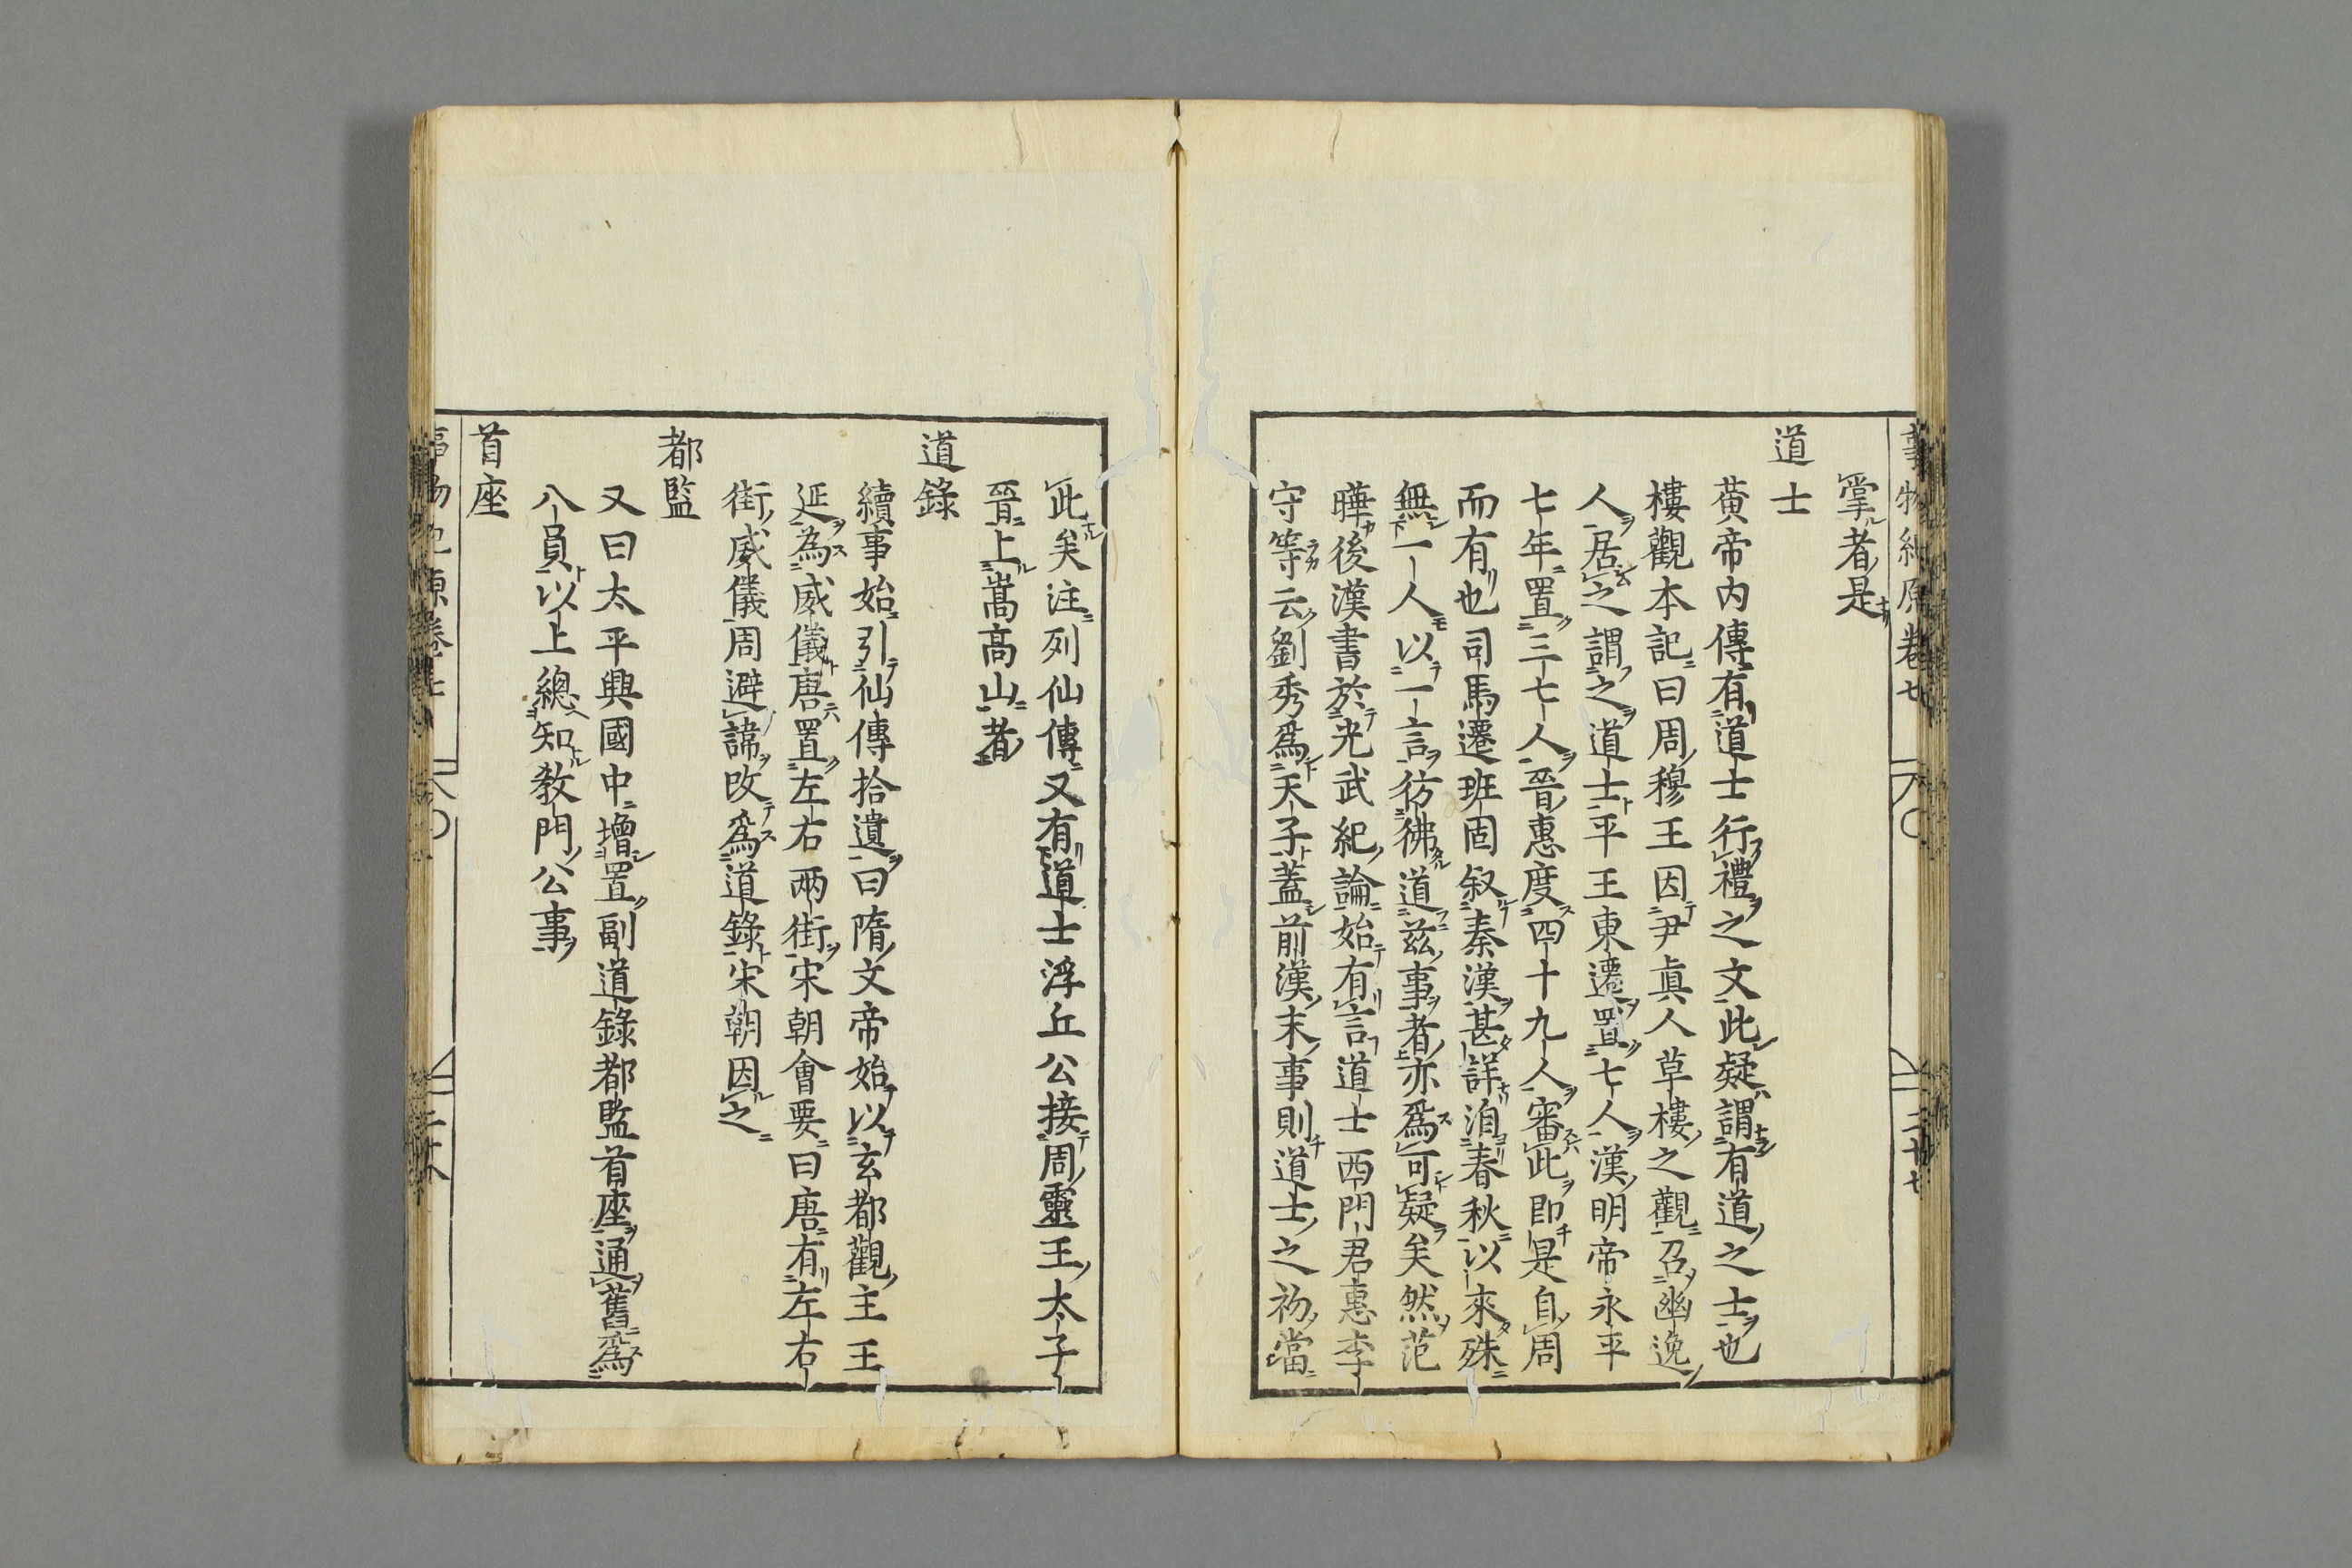 事物紀原卷七
二十七
掌者是
道士
黄帝内傳有道士行禮之文此疑謂有道之士也
樓觀本記曰周穆王因尹真人草樓之觀召幽逸
人居之謂之道士平王東遷置七人漢明帝永平
七年置三七人晉惠度四十九人審此即是自周
而有也司馬遷班固叙秦漢甚詳洎春秋以來殊
無一人以一言彷彿道兹事者亦爲可疑矣然范
曄後漢書於光武紀論始有言道士西門君惠李
守等云劉秀爲天子蓋前漢末事則道士之初當
此矣注列仙傳又有道士浮丘公接周靈王太子
晉上嵩高山者
道錄
續事始引仙傳拾遺曰隋文帝始以玄都觀主王
延為威儀唐置左右兩街宋朝會要曰唐有左右
街威儀周避諱改爲道錄宋朝因之
都監
又曰太平興國中增置副道錄都監首座通舊爲
八員以上總知教門公事
首座